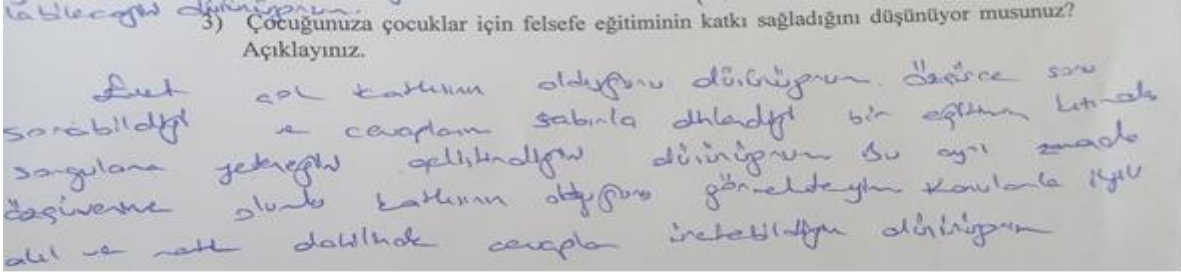 3) Çocuğunuza çocuklar için felsefe eğitiminin katkı sağladığını düşünüyor musunuz?
Açıklayınız.
Evet çok katkısının olduğunu düşünüyorum. Özgürce soru
sorabildiği ve cevapların sabırla dinlendiği bir eğitim
sorgulama yeteneğini geliştirdiğini düşünüyorum Bu aynı zamanda
özgüvenine olumlu katkısının olduğunu görmekteyim Konularla ilgili
akıl ve mantık dahilinde cevaplar üretebildiğini düşünüyorum